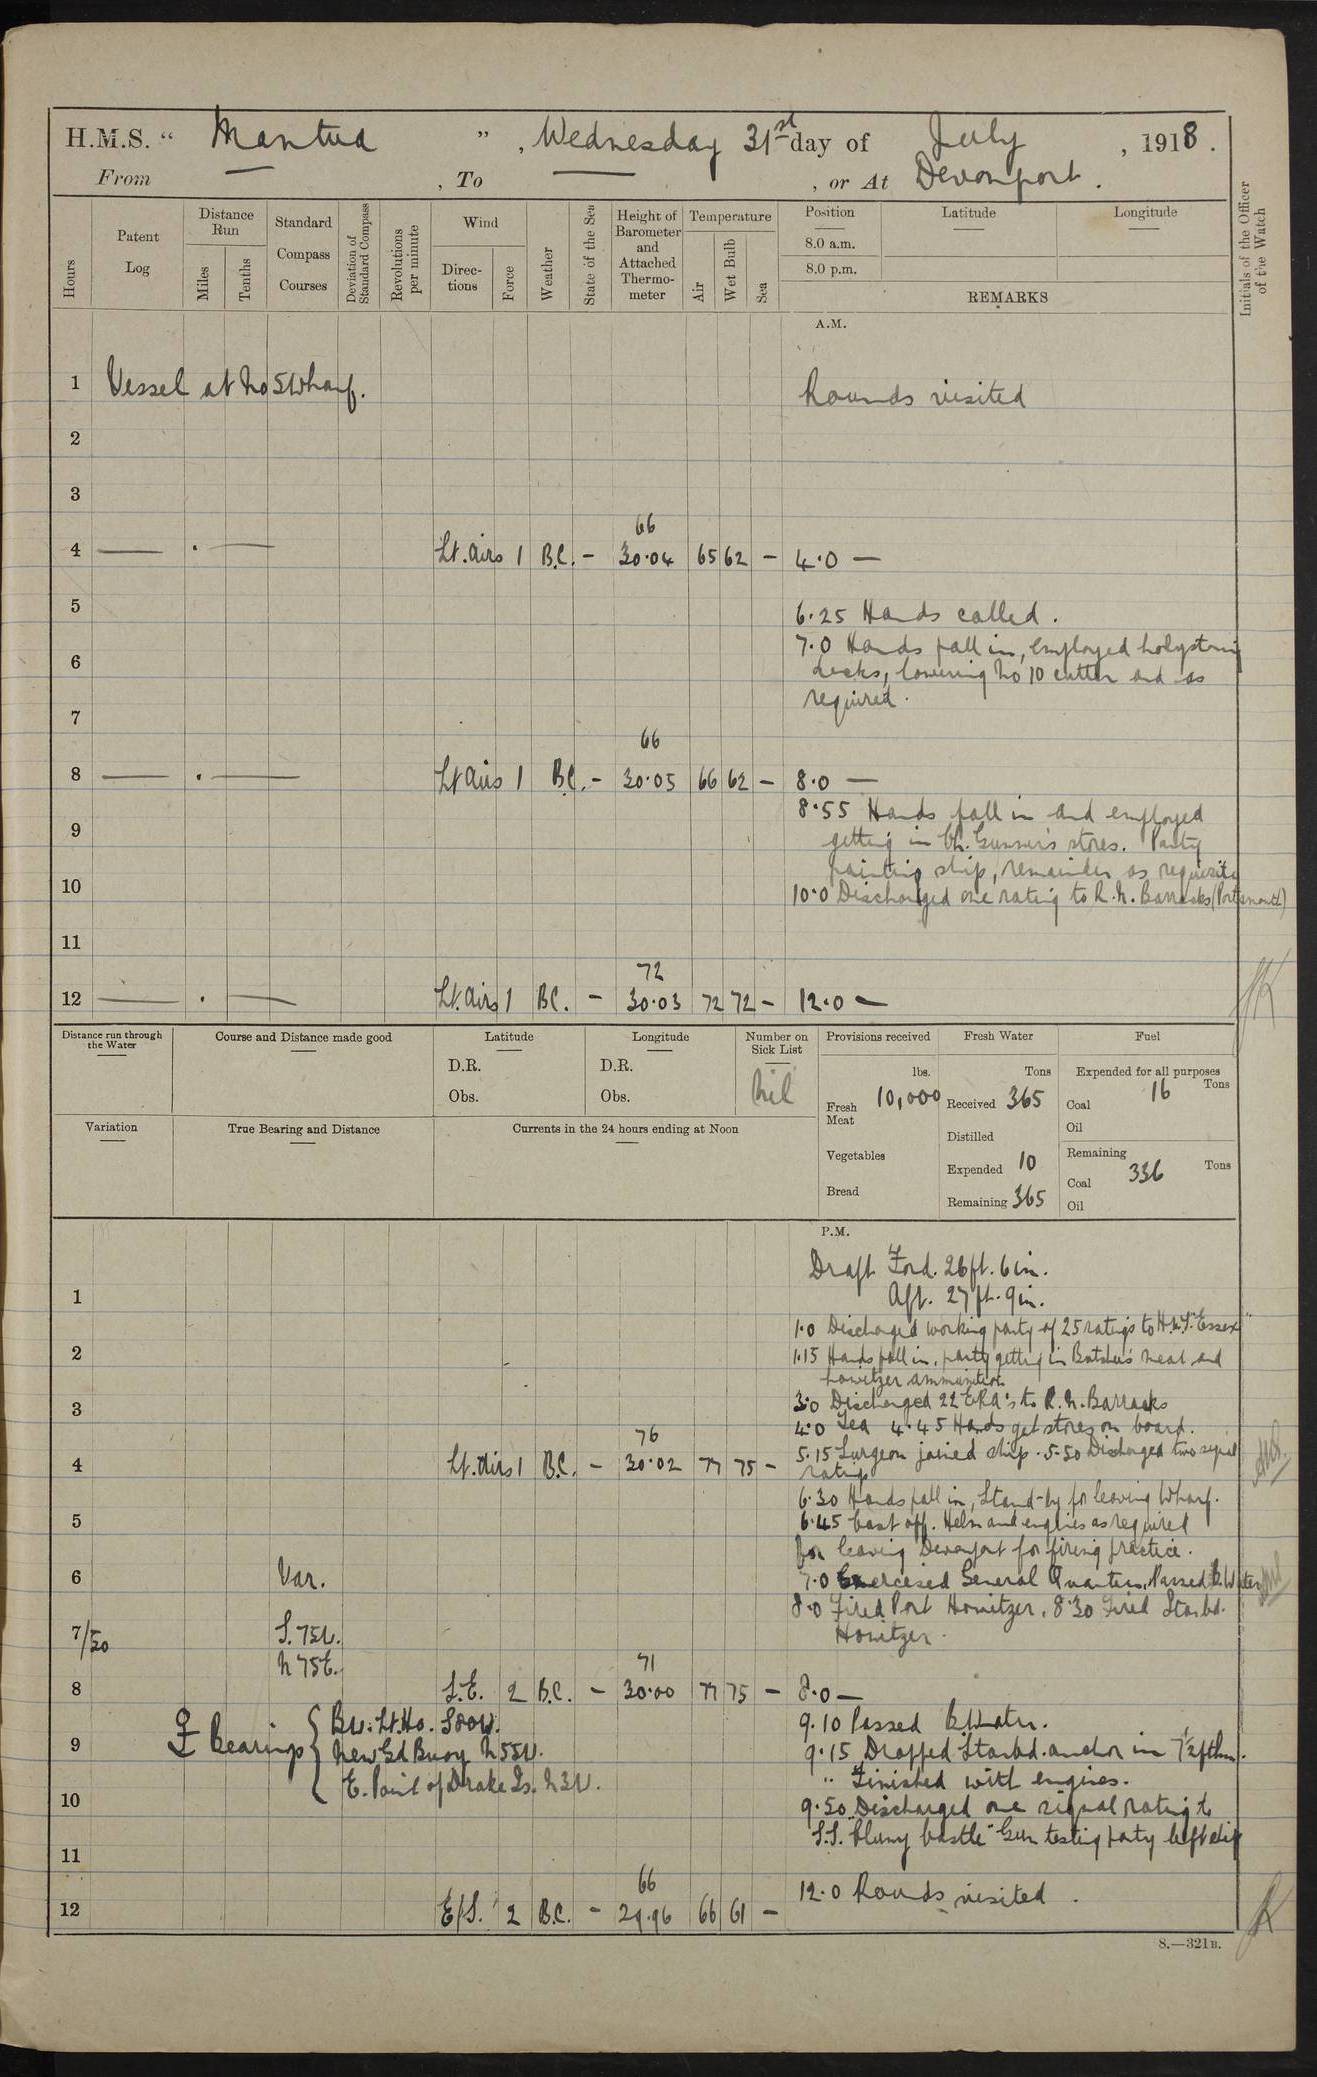 H.M.S. " Mantua ", Wednesday 31st day of July, 1918.
From — , To — , or At Devonport.
Hours
Patent Log
Distance Run
Miles
Tenths
Standard Compass Courses
Deviation of Standard Compass
Revolutions per minute
Wind
Directions
Force
Weather
State of the Sea
Height of Barometer and Attached Thermometer
Temperature
Air
Wet Bulb
Sea
Position
Latitude
Longitude
8.0 a.m.
8.0 p.m.
REMARKS
Initials of the Officer of the Watch
A.M.
1 Vessel at No 5 Wharf. Rounds visited
2
3
66
4 — . — Lt. airs 1 B.C. - 30.04 65 62 - 4.0 —
5 6.25 Hands called.
7.0 Hands fall in, employed holystoning
6 decks, lowering No 10 cutter and as
required.
7
66
8 — . — Lt airs 1 B.C. - 30.05 66 62 - 8.0 —
8.55 Hands fall in and employed
9 getting in Ch. Gunner's stores. Party
painting ship, remainder as requisite
10 10.0 Discharged one rating to R.N. Barracks (Portsmouth)
11
72
12 — . — Lt. airs 1 B.C. - 30.03 72 72 - 12.0 —
Distance run through the Water
Course and Distance made good
Latitude
D.R.
Obs.
Longitude
D.R.
Obs.
Number on Sick List
Nil
Provisions received
lbs.
Fresh Meat 10,000
Vegetables
Bread
Fresh Water
Tons
Received 365
Distilled
Expended 10
Remaining 365
Fuel
Expended for all purposes
Coal 16 Tons
Oil
Remaining
Coal 336 Tons
Oil
Variation
True Bearing and Distance
Currents in the 24 hours ending at Noon
P.M.
Draft Ford. 26 ft. 6 in.
1 Aft. 27 ft. 9 in.
1.0 Discharged working party of 25 ratings to H.M.S. "Essex"
2 1.15 Hands fall in, party getting in Butcher's meat and
howitzer ammunition.
3 3.0 Discharged 22 ERA's to R.N. Barracks
4.0 Tea 4.45 Hands get stores on board.
76
4 Lt. airs 1 B.C. - 30.02 77 75 - 5.15 Surgeon joined ship. 5.50 Discharged two signal
ratings
6.30 Hands fall in, Stand-by for leaving Wharf.
5 6.45 Cast off. Helm and engines as required
for leaving Devonport for firing practice.
6 Var. 7.0 Exercised General Quarters, Passed B. Water
8.0 Fired Port Howitzer, 8.30 Fired Starbd.
7/50 S. 75 W. Howitzer.
N 75 E.
71
8 S.E. 2 B.C. - 30.00 77 75 - 8.0 —
Bearings
Bw. Lt. Ho. S80W. 9.10 Passed B. Water.
9 New Gd Buoy N 55W. 9.15 Dropped Starbd. anchor in 7½ fthm.
E. Point of Drake Is. N 3W. " Finished with engines.
10 9.50 Discharged one signal rating to
S.S. "Pluny Castle" Gun testing party left ship
11
66
12 E/S. 2 B.C. - 29.96 66 61 - 12.0 Rounds visited.
8.—321B.